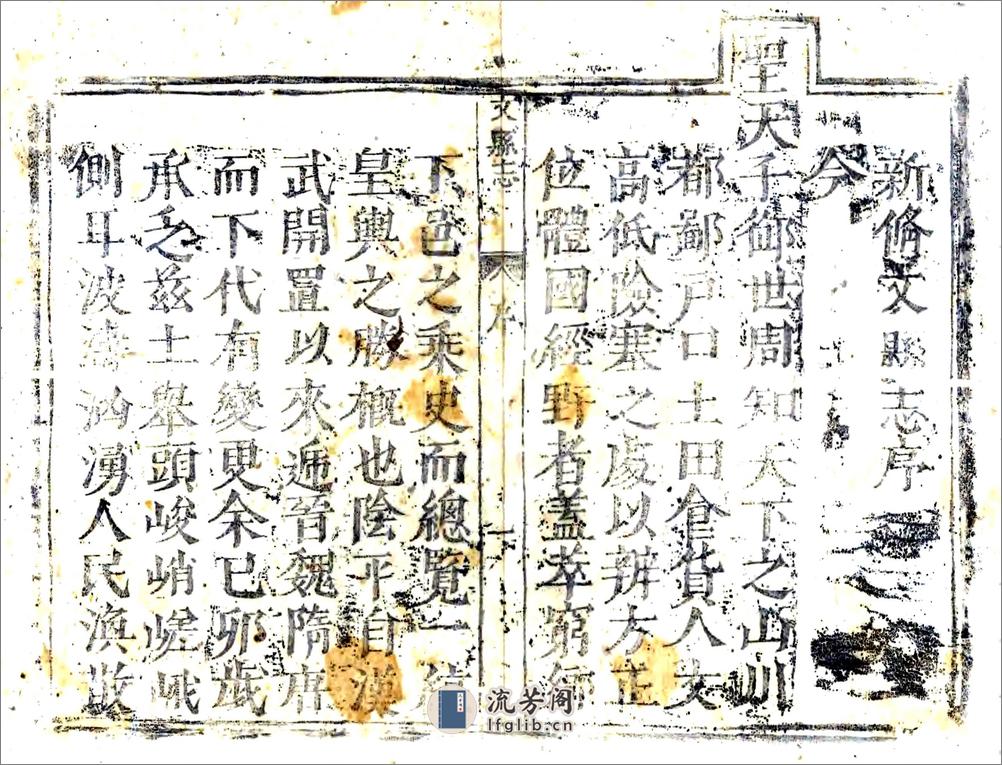 新脩文縣志序
今
聖天子御世周知天下之山川
都鄙戶口土田倉貨人文
高低險塞之處以辨方正
位體國經野者蓋萃窮
文縣志 序 一
下邑之乘史而總覽一
皇輿之勝概也陰平自漢
武開置以來遞晉魏隋唐
而下代有變更余己卯歲
承乏茲土舉頭峻峭嵯峨
側耳波濤洶湧人民渙散
流芳阁
lfglib.cn